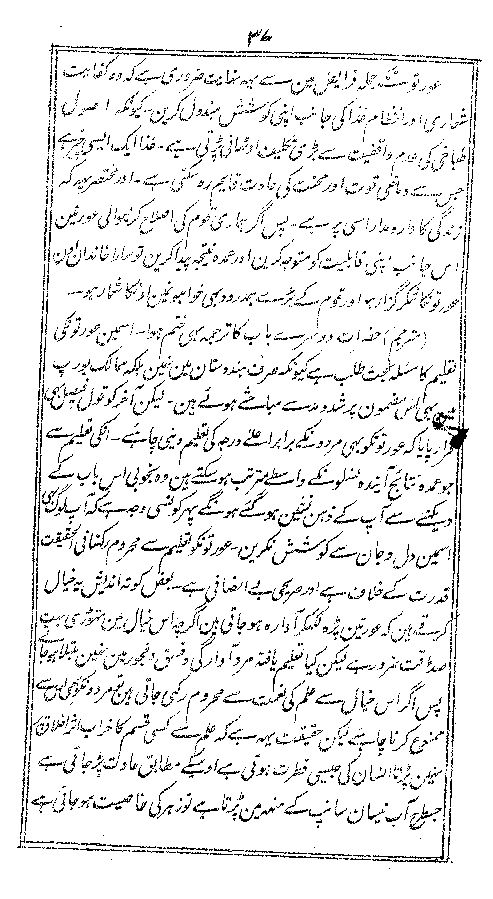 ۳۷
عورتونکے جملہ فرایض مین سے یہہ نہایت ضروری ہے کہ وہ کفایت
شعاری اور انتظام غذا کی جانب اپنی کوشش مبذول کرین۔ کیونکہ اصول
طباخی کی عدم واقفیت سے بڑی تکلیفین اوٹھانی پڑتی ہے۔ غذا ایک ایسی چیز ہے
جس سے دماغی قوت اور محنت کی عادت قایم رہ سکتی ہے۔ اور مختصر یہہ کہ
زندگی کا دار و مدار اسی پر ہے۔ پس اگر ہماری قوم کی اصلاح کرنیوالی عورتین
اس جانب اپنی قابلیت کو متوجہ کرین اور عمدہ نتیجہ پیدا کرین تو سارا خاندان اون
عورتونکا شکرگزار ہو اور قوم کے بڑے ہمدرد و بہی خواہونمین اونکا شمار ہو۔
(مترجم) حضرات دوسرے باب کا ترجمہ بہی ختم ہوا۔ اسمین عورتونکی
تعلیم کا مسئلہ بحث طلب ہے کیونکہ صرف ہندوستان مین نہین بلکہ ممالک یورپ
مین بہی اس مضمون پر شد و مد سے مباحثے ہوئے ہین۔ لیکن آخر کو قول فیصل یہی
قرار پایا کہ عورتونکو بہی مردونکے برابر اعلے درجہ کی تعلیم دینی چاہئے۔ انکی تعلیم سے
جو عمدہ نتائج آیندہ نسلونکے واسطے مترتب ہوسکتے ہین وہ بخوبی اس باب کے
دیکہنے سے آپ کے ذہن نشین ہوگئے ہونگے پہر کونسی وجہ ہے کہ آپ لوگ بہی
اسمین دل و جان سے کوشش نکرین۔ عورتونکو تعلیم سے محروم رکہنا فی الحقیقت
قدرت کے خلاف ہے اور صریحی بے انصافی ہے۔ بعض کوتہ اندیش یہ خیال
کرتے ہین کہ عورتین پڑہ لکہکر آوارہ ہوجاتی ہین اگرچہ اس خیال مین تہوڑی سی
صداقت ضرور ہے لیکن کیا تعلیم یافتہ مرد آوارگی و فسق و فجور مین نہین مبتلا ہوجاتے
پس اگر اس خیال سے علم کی نعمت سے محروم رکہی جاتی ہین تو مردونکو بہی اس سے
ممنوع کرنا چاہئے لیکن حقیقت یہہ ہے کہ علم سے کسی قسم کا خراب اثر اخلاق پر
نہین پڑتا انسان کی جیسی فطرت ہوتی ہے اوسکے مطابق عادت پڑجاتی ہے
جسطرح آب نیسان سانپ کے منہہ مین پڑتا ہے تو زہر کی خاصیت ہوجاتی ہے